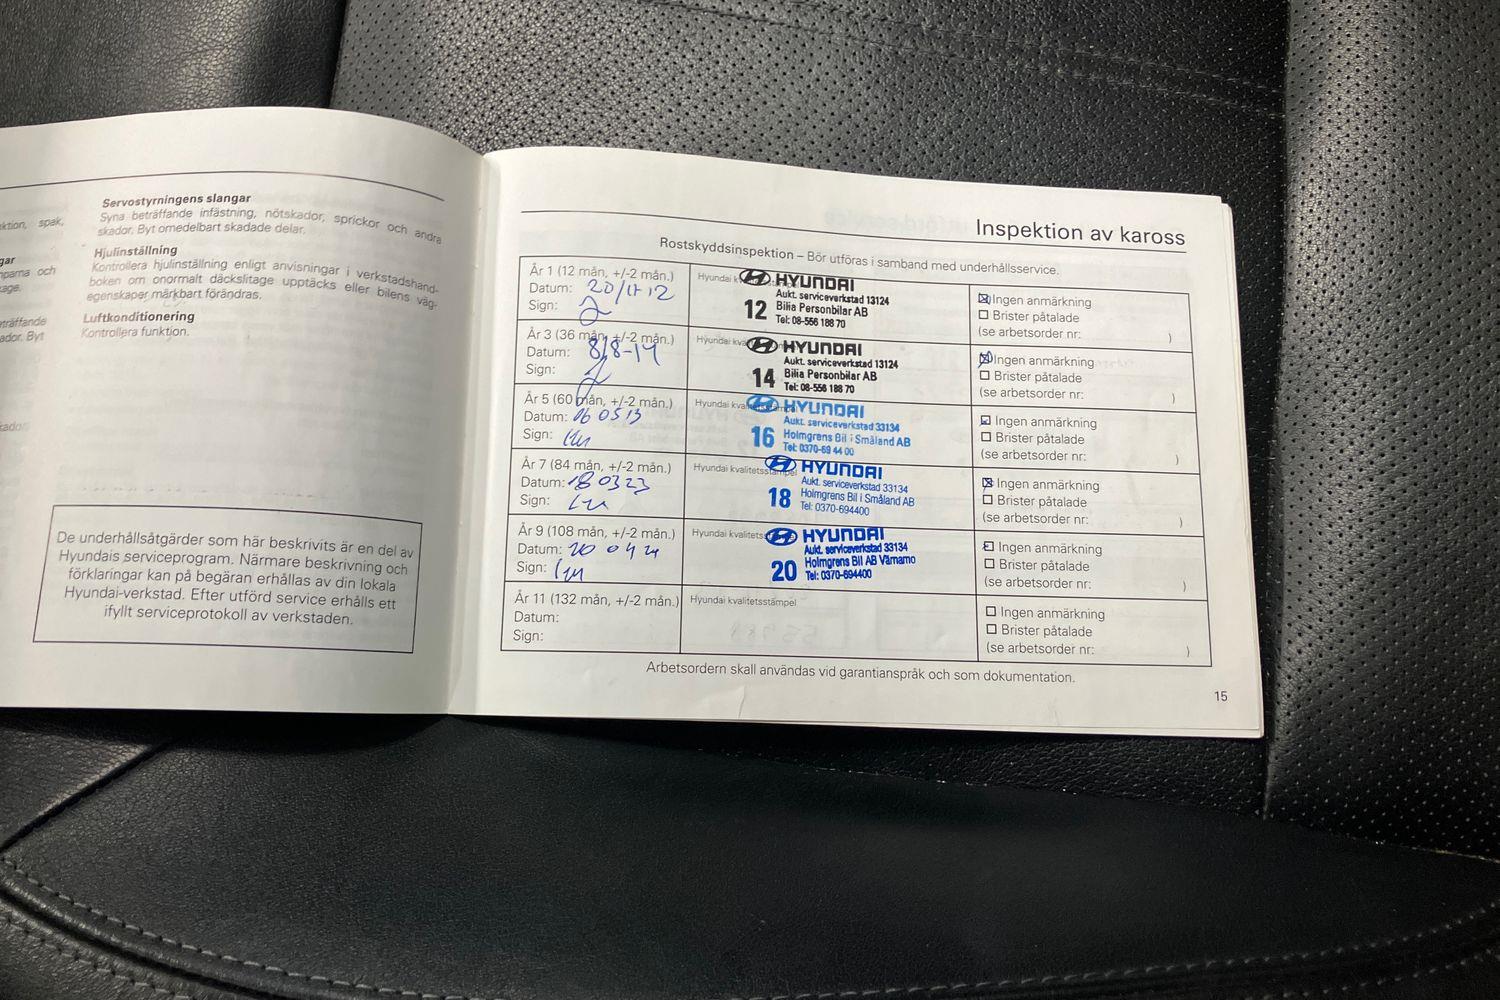 ktion, spak,
gar
mparna och
kage.
eträffande
ador. Byt
kador.
Servostyrningens slangar
Syna beträffande infästning, nötskador, sprickor och andra
skador. Byt omedelbart skadade delar.
Hjulinställning
Kontrollera hjulinställning enligt anvisningar i verkstadshand-
boken om onormalt däckslitage upptäcks eller bilens väg-
egenskaper märkbart förändras.
Luftkonditionering
Kontrollera funktion.
De underhållsåtgärder som här beskrivits är en del av
Hyundais serviceprogram. Närmare beskrivning och
förklaringar kan på begäran erhållas av din lokala
Hyundai-verkstad. Efter utförd service erhålls ett
ifyllt serviceprotokoll av verkstaden.
Inspektion av kaross
Rostskyddsinspektion – Bör utföras i samband med underhållsservice.
År 1 (12 mån, +/-2 mån.)
Datum:
Sign:
HYUNDAI
Aukt. serviceverkstad 13124
12 Bilia Personbilar AB
Tel: 08-556 188 70
Ingen anmärkning
Brister påtalade
(se arbetsorder nr: )
År 3 (36 mån, +/-2 mån.)
Datum: 8/8-14
Sign:
HYUNDAI
Aukt. serviceverkstad 13124
14 Bilia Personbilar AB
Tel: 08-556 188 70
Ingen anmärkning
Brister påtalade
(se arbetsorder nr: )
År 5 (60 mån, +/-2 mån.)
Datum:
Sign:
HYUNDAI
Aukt. serviceverkstad 33134
16 Holmgrens Bil i Småland AB
Tel: 0370-69 44 00
Ingen anmärkning
Brister påtalade
(se arbetsorder nr: )
År 7 (84 mån, +/-2 mån.)
Datum: 180323
Sign:
Hyundai kvalitetsstämpel
HYUNDAI
Aukt. serviceverkstad 33134
18 Holmgrens Bil i Småland AB
Tel: 0370-694400
Ingen anmärkning
Brister påtalade
(se arbetsorder nr: )
År 9 (108 mån, +/-2 mån.)
Datum:
Sign:
HYUNDAI
Aukt. serviceverkstad 33134
20 Holmgrens Bil AB Värnamo
Tel: 0370-694400
Ingen anmärkning
Brister påtalade
(se arbetsorder nr: )
År 11 (132 mån, +/-2 mån.)
Datum:
Sign:
Hyundai kvalitetsstämpel
Ingen anmärkning
Brister påtalade
(se arbetsorder nr: )
Arbetsordern skall användas vid garantianspråk och som dokumentation.
15